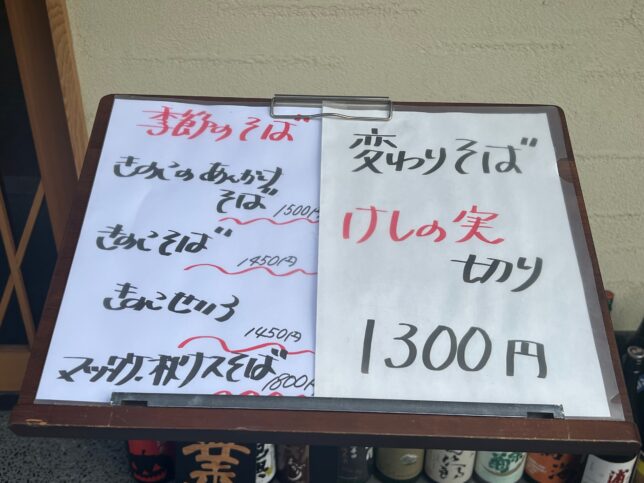 季節のそば
きのこのあんかけ
そば
1500円
きのこそば
1450円
きのこせいろ
1450円
1800円
変わりそば
けしの実
切り
1300円